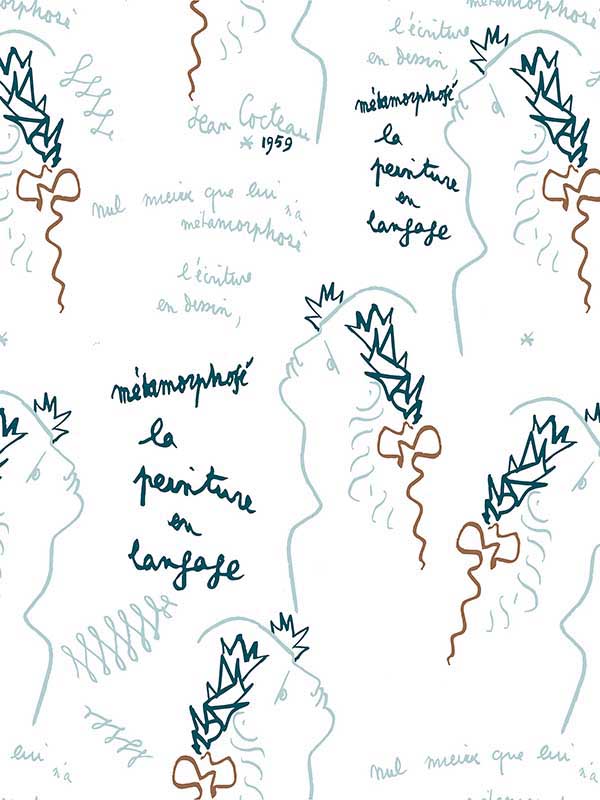 métamorphosé
l'écriture
en dessin
métamorphosé
la
peinture
en
langage
Jean Cocteau
* 1959
nul mieux que lui
n'a
métamorphosé
l'écriture
en dessin,
métamorphosé
la
peinture
en
langage
lui
n'a
nul mieux que lui
n'a